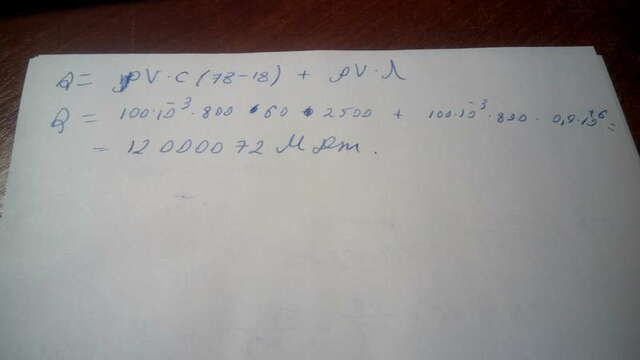 Q = ρV·C(78-18) + ρV·λ
Q = 100·10⁻³·800·60·2500 + 100·10⁻³·800·0,9·10⁶=
= 12 0000 72 МДж.